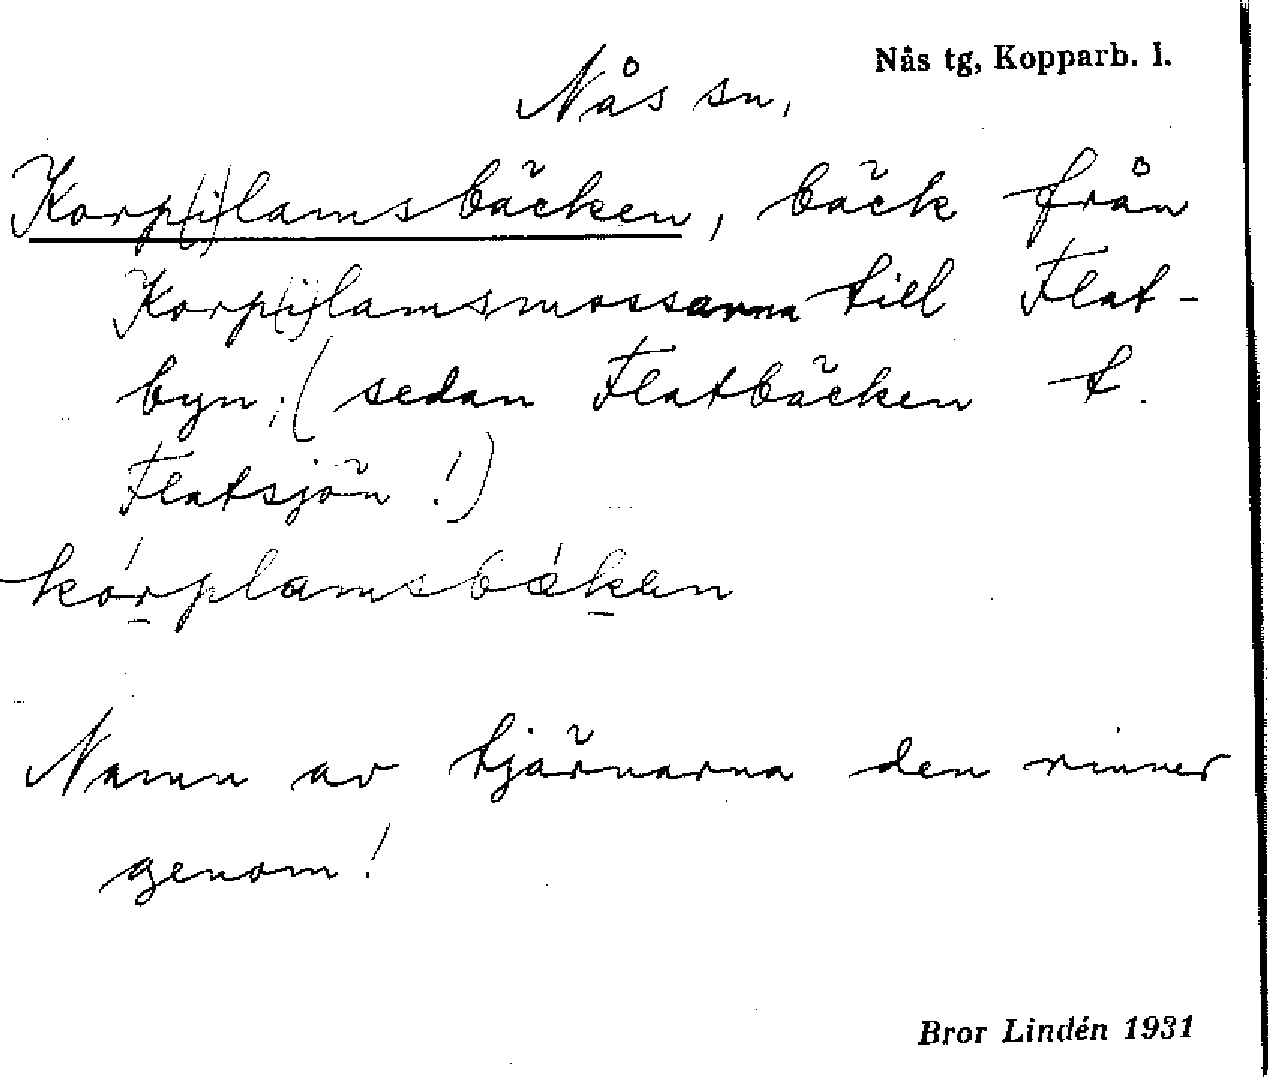 Nås tg, Kopparb. l.
Nås sn,
Korp(i)lamsbäcken, bäck från
Korp(i)lamsmossarna till Flat-
byn; (sedan Flatbäcken t.
Flatsjön!)
kórplamsbäken
Namn av tjärnarna den rinner
genom!
Bror Lindén 1931